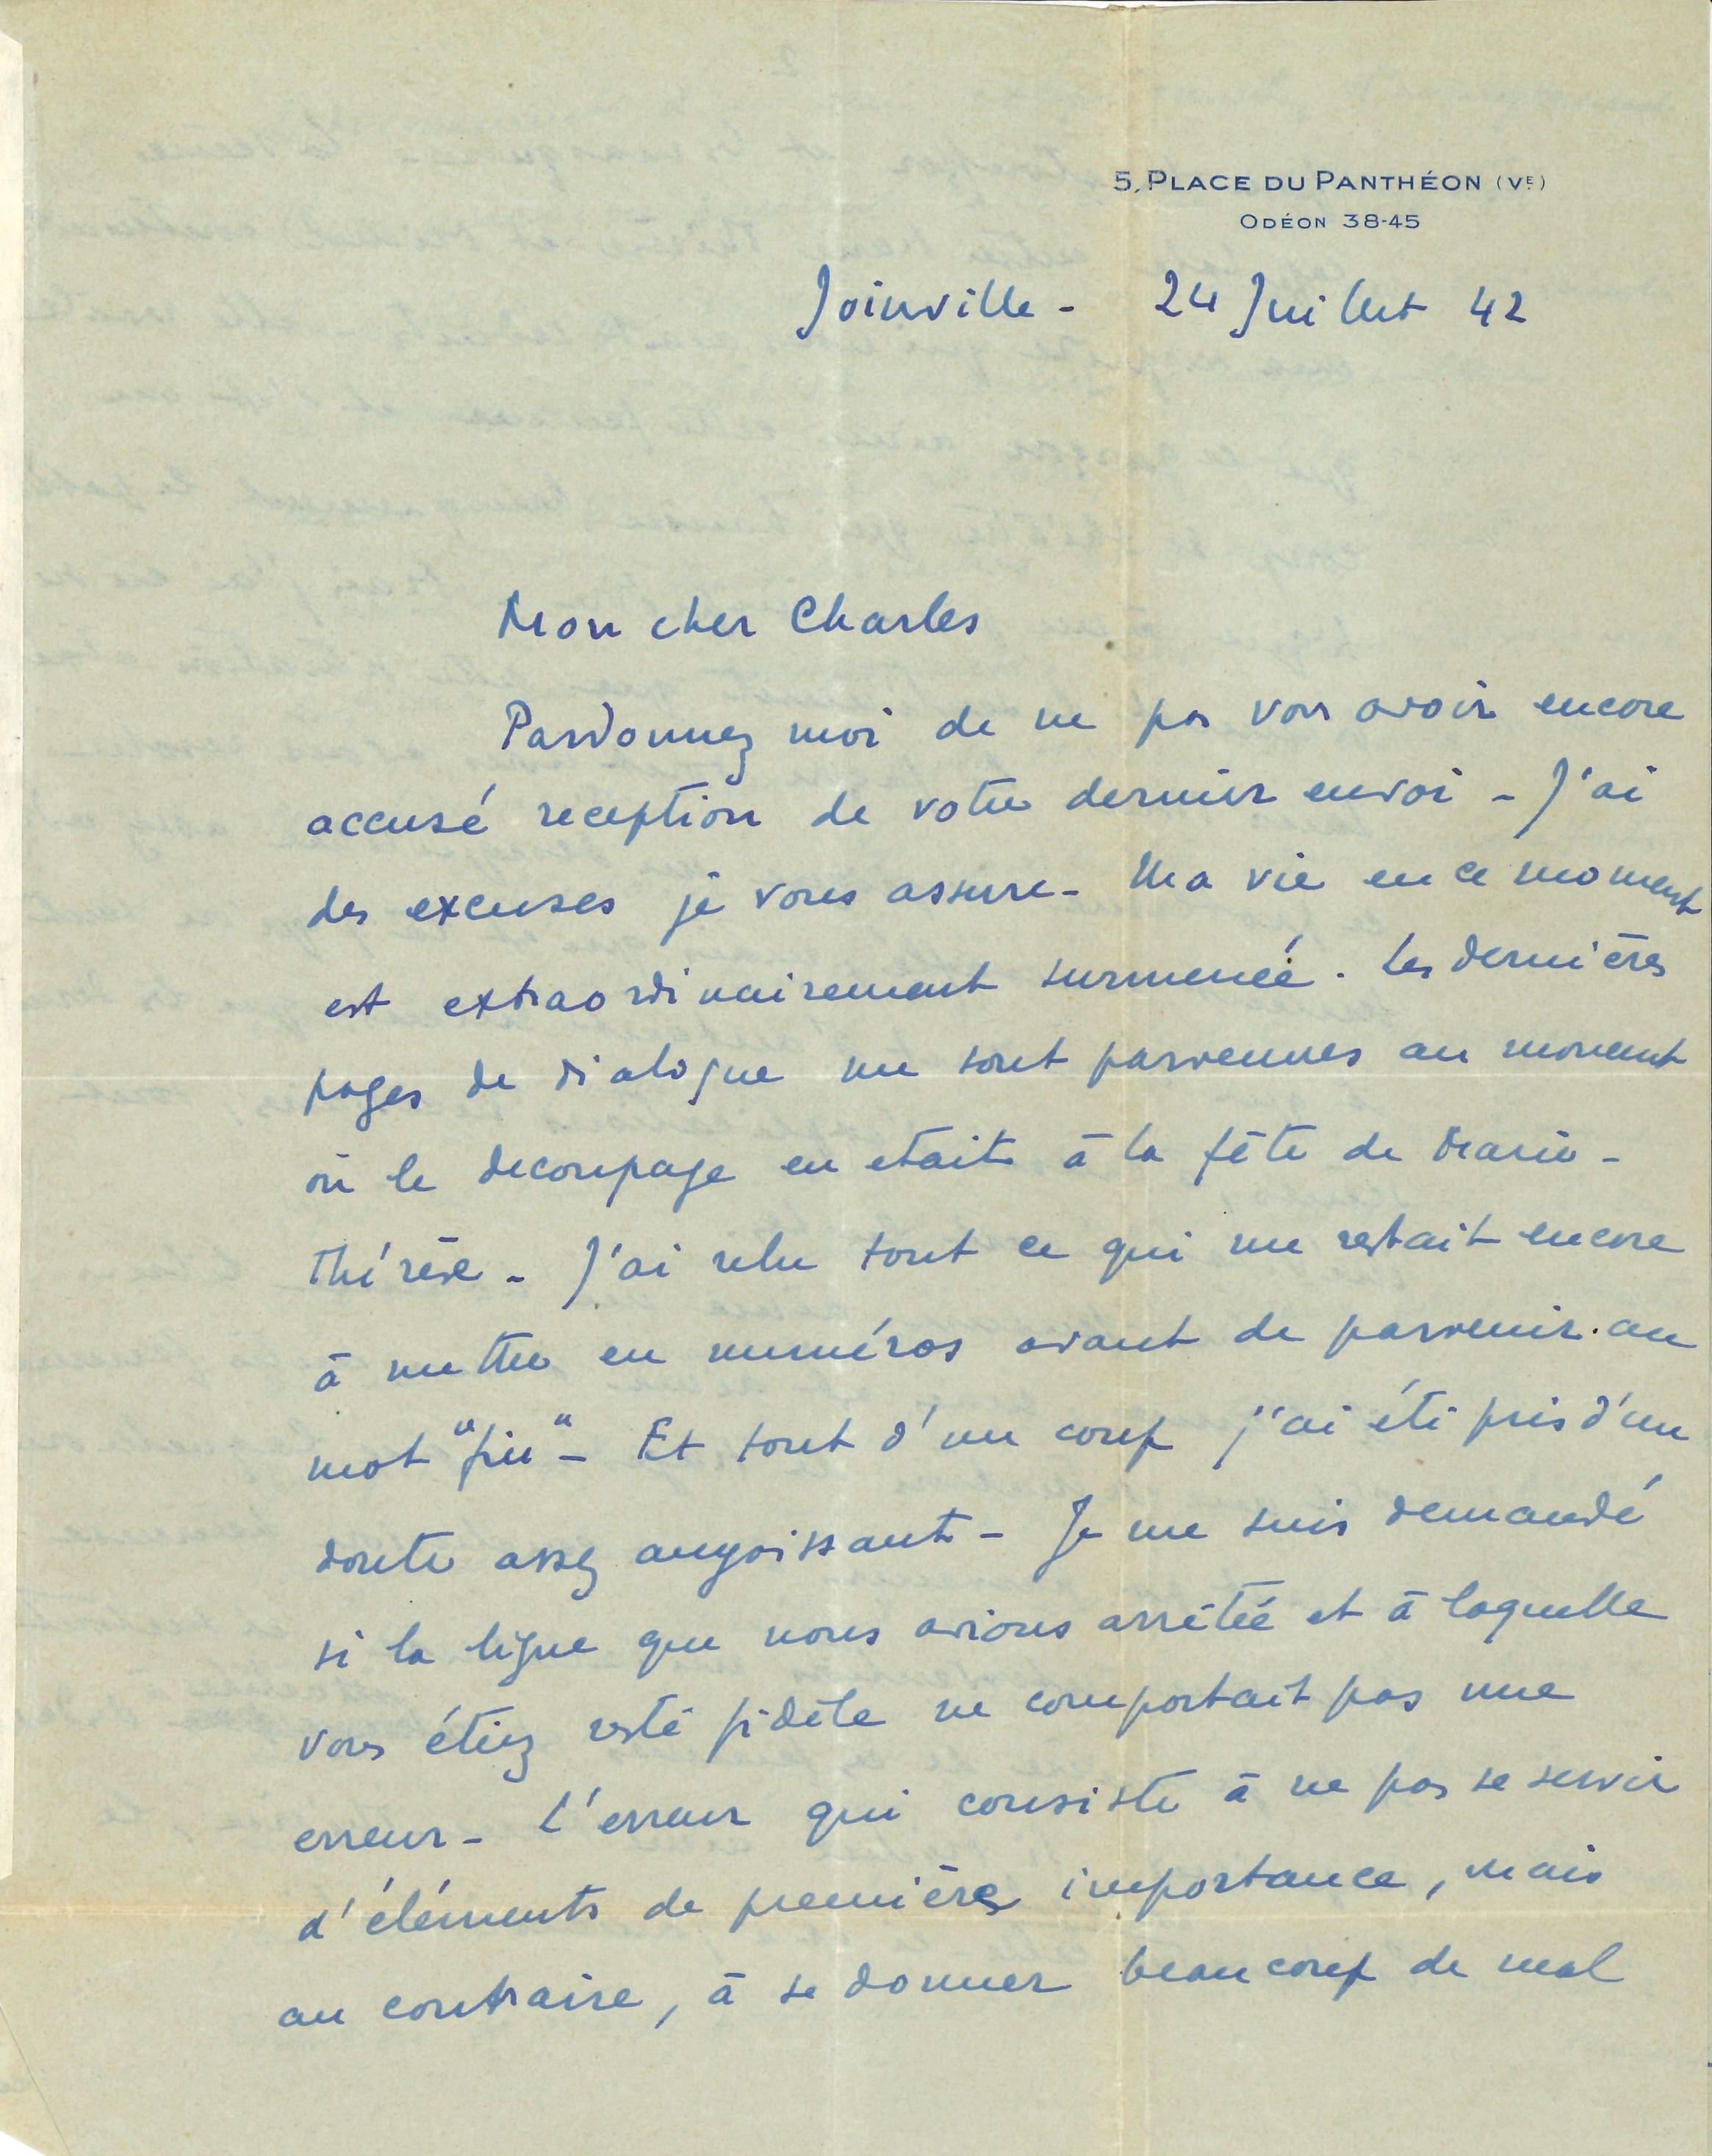 5, PLACE DU PANTHÉON (VE)
ODÉON 38-45
Joinville - 24 Juillet 42
Mon cher Charles
Pardonnez moi de ne pas vous avoir encore
accusé reception de votre dernier envoi - J'ai
des excuses je vous assure - Ma vie en ce moment
est extraordinairement surmenée. Les dernières
pages de dialogue me sont parvenues au moment
où le decoupage en etait à la fête de Marie-
Thérèse - J'ai relu tout ce qui me restait encore
à mettre en numéros avant de parvenir au
mot "fin" - Et tout d'un coup j'ai été pris d'un
doute assez angoissant - Je me suis demandé
si la ligne que nous avions arrêtée et à laquelle
vous étiez resté fidèle ne comportait pas une
erreur - L'erreur qui consiste à ne pas se servir
d'éléments de première importance, mais
au contraire, à se donner beaucoup de mal